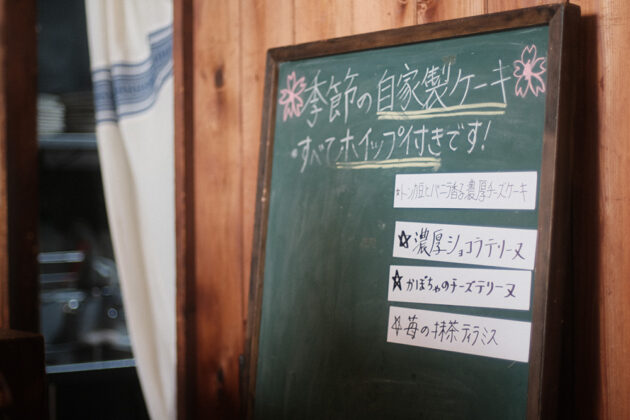 季節の自家製ケーキ
・すべてホイップ付きです!
☆トンカ豆とバニラ香る濃厚チーズケーキ
☆濃厚ショコラテリーヌ
☆かぼちゃのチーズテリーヌ
☆苺の抹茶ティラミス